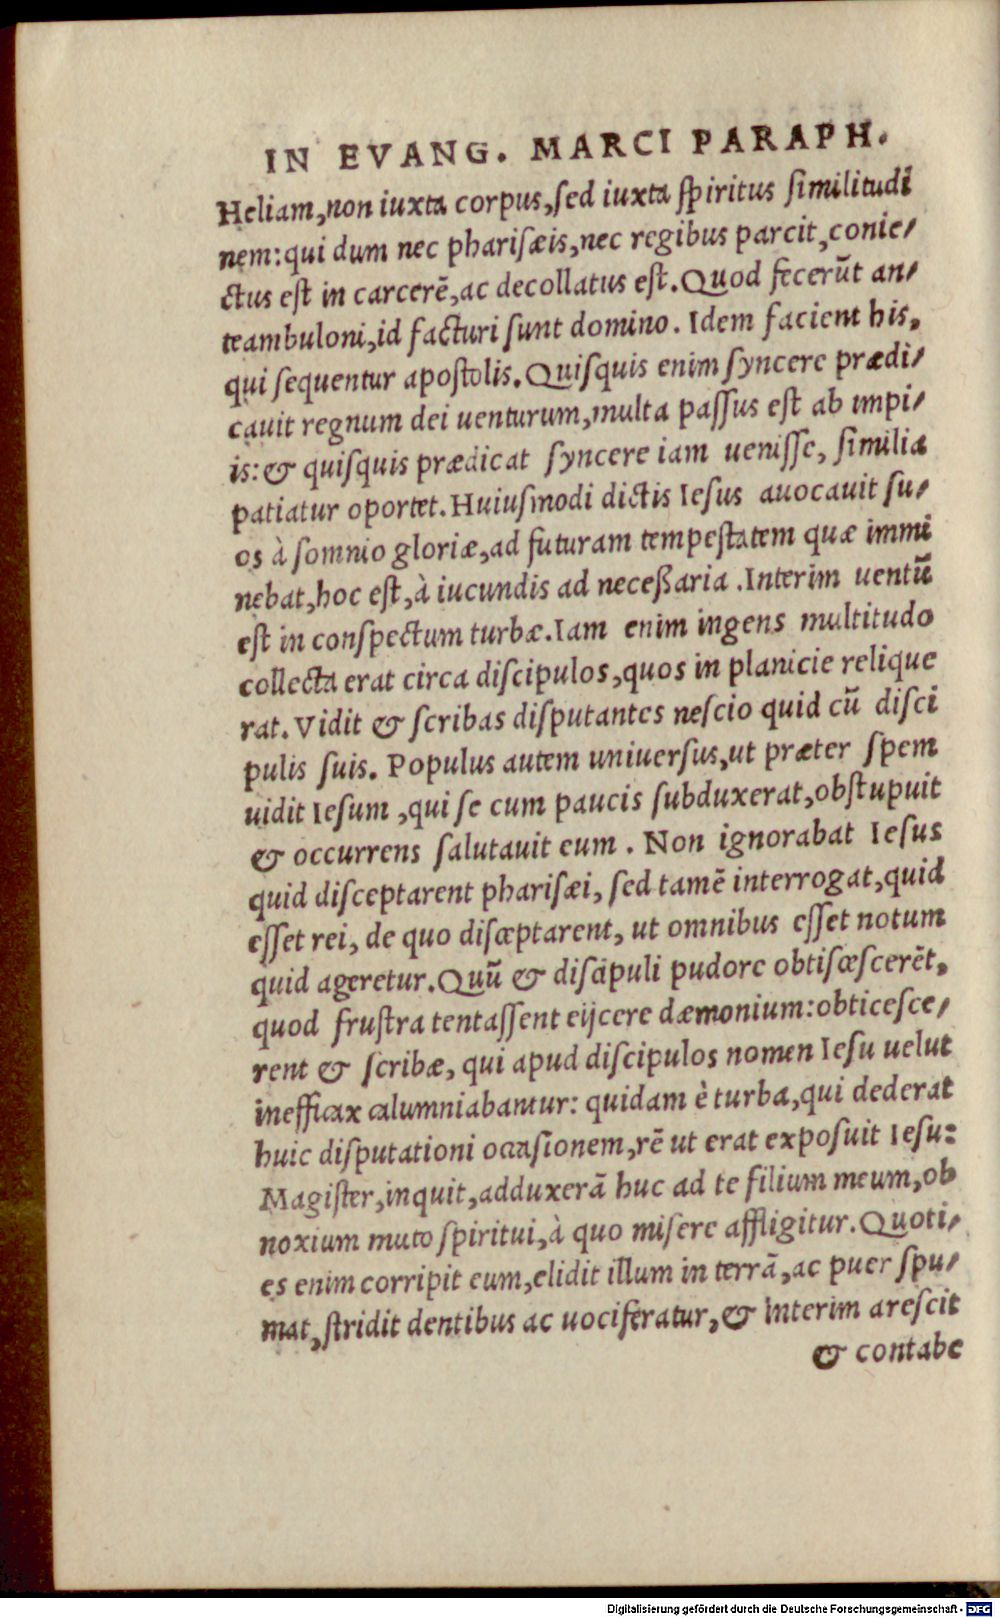 IN EVANG. MARCI PARAPH.
Heliam,non iuxta corpus,sed iuxta spiritus similitudi
nem:qui dum nec pharisæis,nec regibus parcit,conie/
ctus est in carcerē,ac decollatus est.Quod fecerūt an/
teambuloni,id facturi sunt domino. Idem facient his,
qui sequentur apostolis.Quisquis enim syncere prædi/
cauit regnum dei uenturum,multa passus est ab impi/
is:& quisquis prædicat syncere iam uenisse, similia
patiatur oportet.Huiusmodi dictis Iesus auocauit su/
os à somnio gloriæ,ad futuram tempestatem quæ immi
nebat,hoc est,à iucundis ad necessaria .Interim uentū
est in conspectum turbæ.Iam enim ingens multitudo
collecta erat circa discipulos,quos in planicie relique
rat.Vidit & scribas disputantes nescio quid cū disci
pulis suis. Populus autem uniuersus,ut præter spem
uidit Iesum ,qui se cum paucis subduxerat,obstupuit
& occurrens salutauit eum . Non ignorabat Iesus
quid disceptarent pharisæi, sed tamē interrogat,quid
esset rei, de quo disceptarent, ut omnibus esset notum
quid ageretur.Quū & discipuli pudore obtiscescerēt,
quod frustra tentassent eijcere dæmonium:obticesce/
rent & scribæ, qui apud discipulos nomen Iesu uelut
inefficax calumniabantur: quidam è turba,qui dederat
huic disputationi occasionem,rē ut erat exposuit Iesu:
Magister,inquit,adduxerā huc ad te filium meum,ob
noxium muto spiritui,à quo misere affligitur.Quoti/
es enim corripit eum,elidit illum in terrā,ac puer spu/
mat,stridit dentibus ac uociferatur,& interim arescit
& contabe
Digitalisierung gefördert durch die Deutsche Forschungsgemeinschaft - DFG